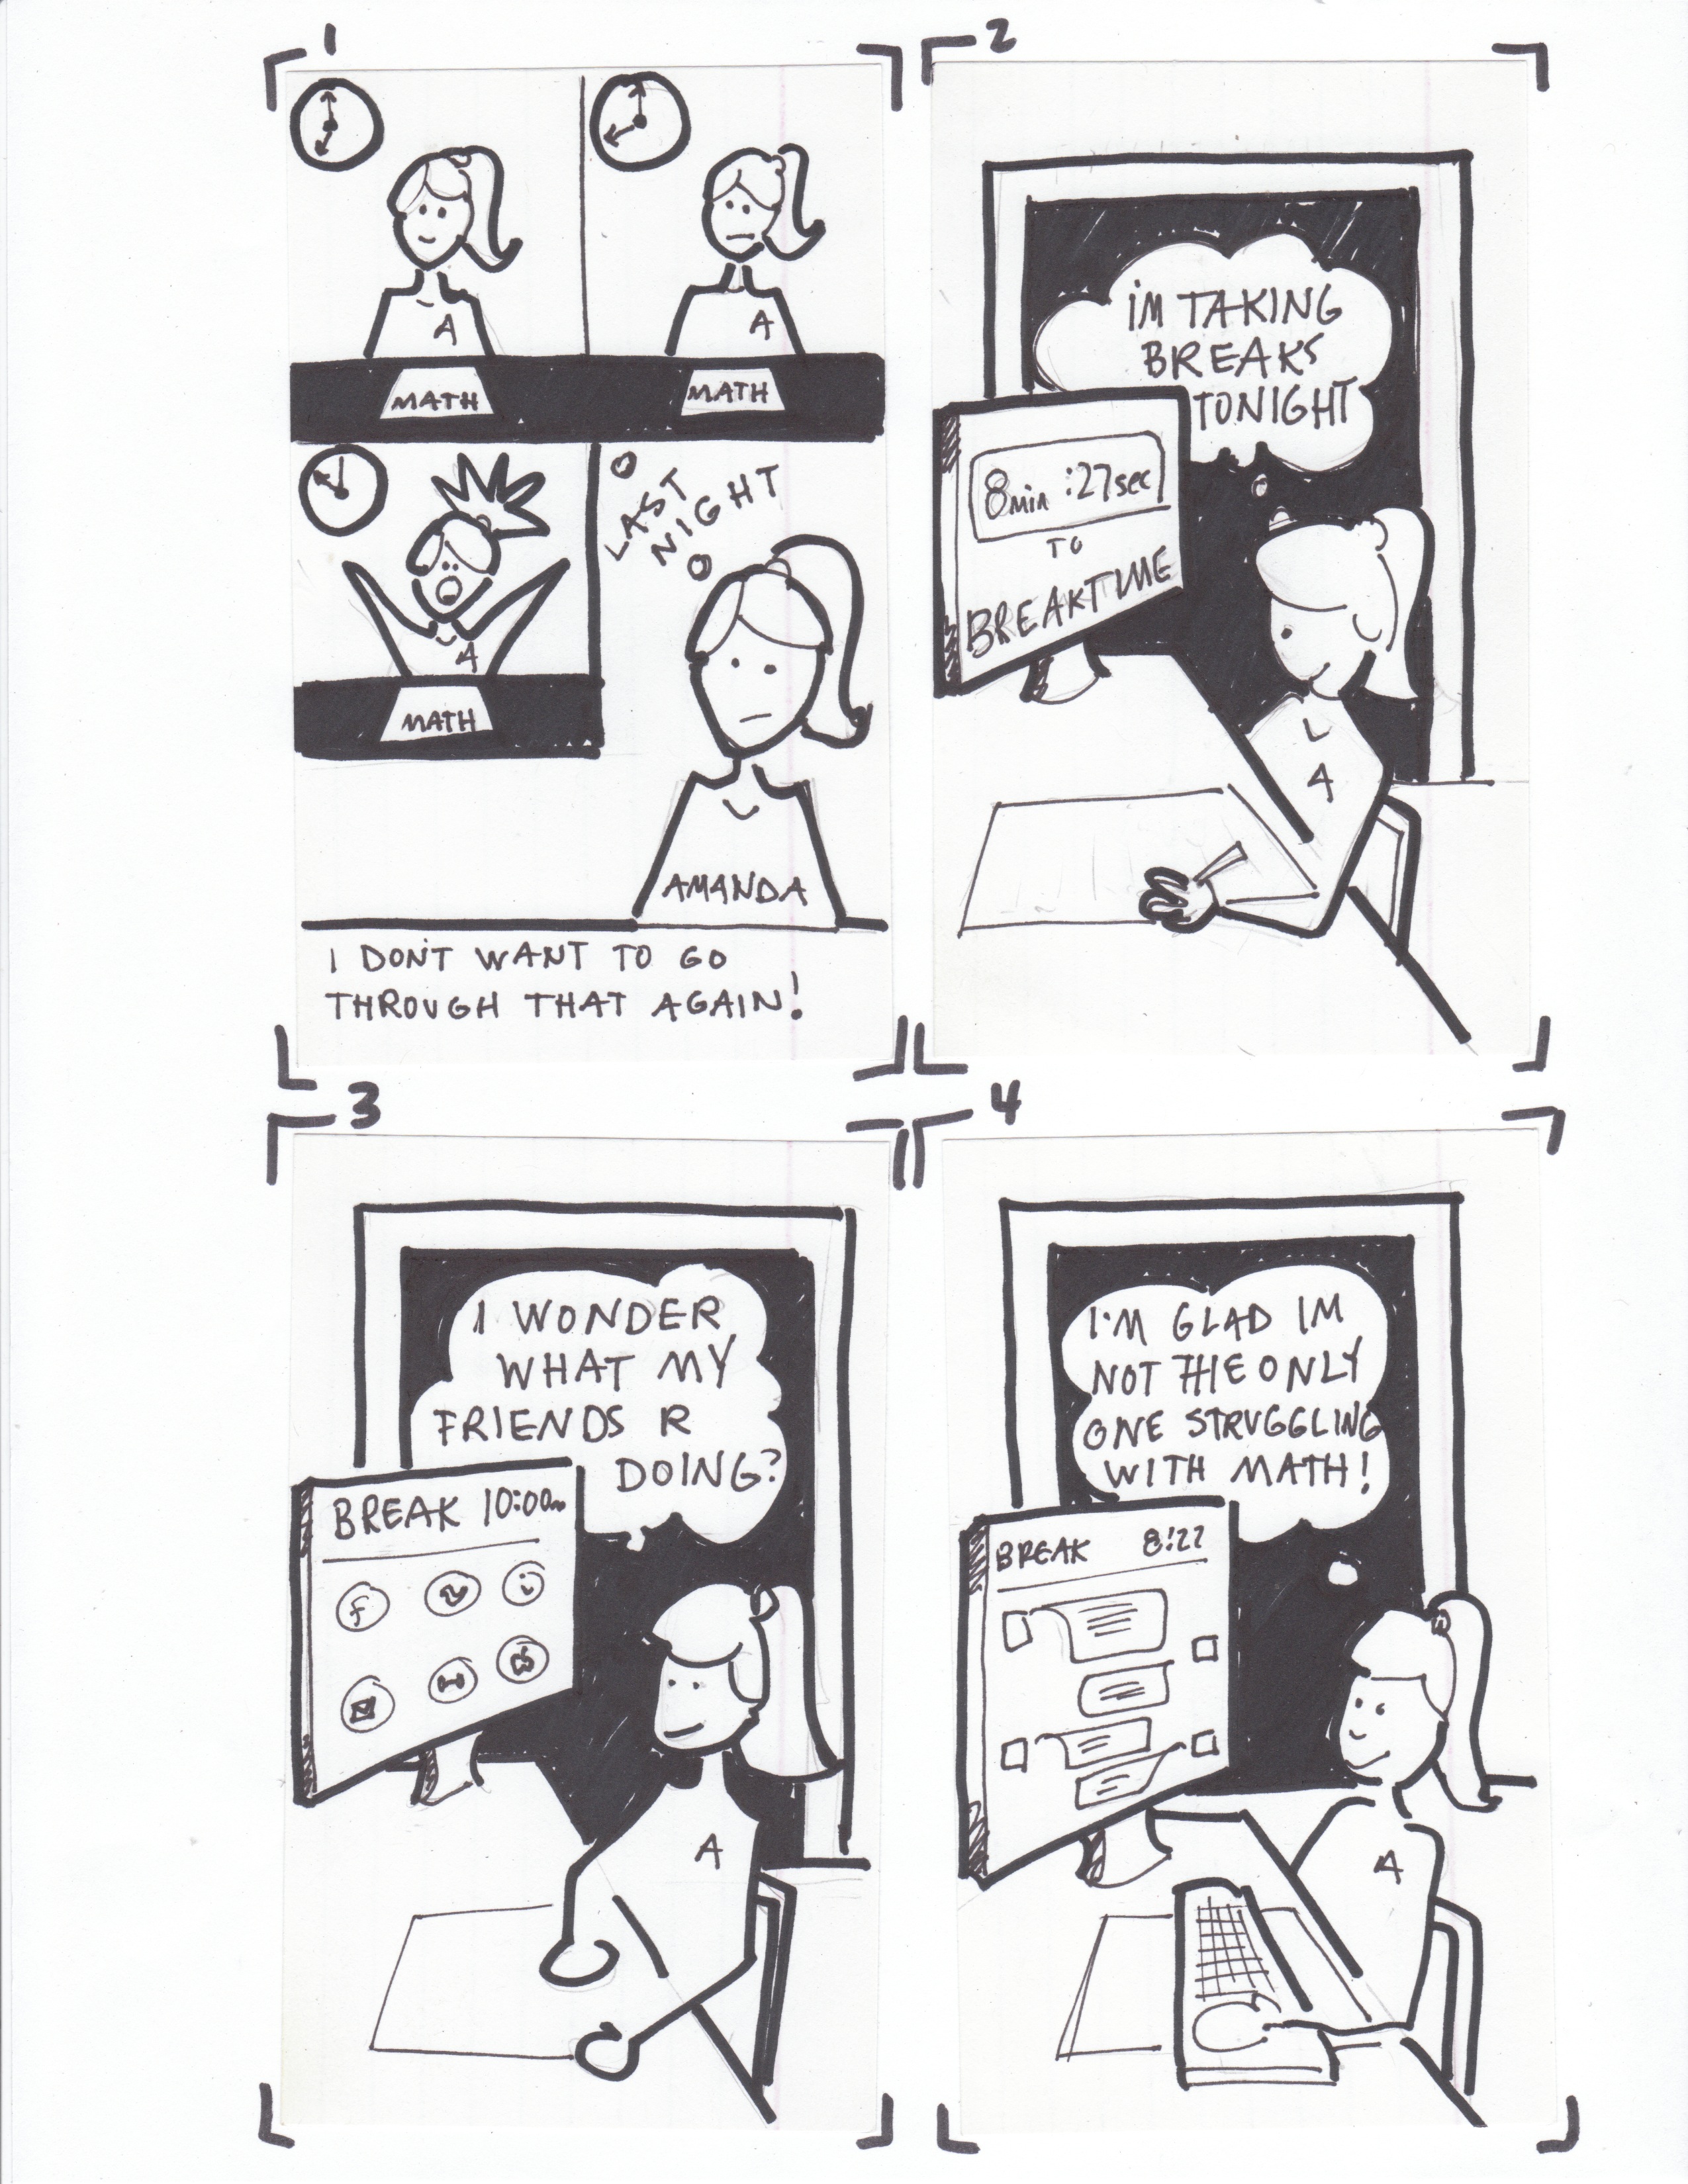 1
A
A
MATH
MATH
LAST
NIGHT
A
MATH
AMANDA
I DON'T WANT TO GO
THROUGH THAT AGAIN!
2
I'M TAKING
BREAKS
TONIGHT
8min :27sec
TO
BREAKTIME
A
3
I WONDER
WHAT MY
FRIENDS R
DOING?
BREAK 10:00m
f
A
4
I'M GLAD IM
NOT THE ONLY
ONE STRUGGLING
WITH MATH!
BREAK 8:22
A